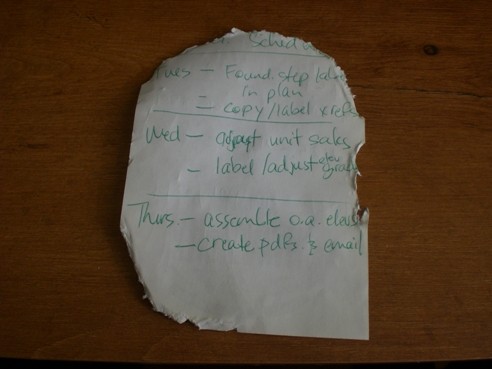 Sched
Tues – Found. step
in plan
= copy/label xrefs
Wed – adjust unit
– label/adjust
Thurs – assemble o.a. elevs
– create pdfs & email